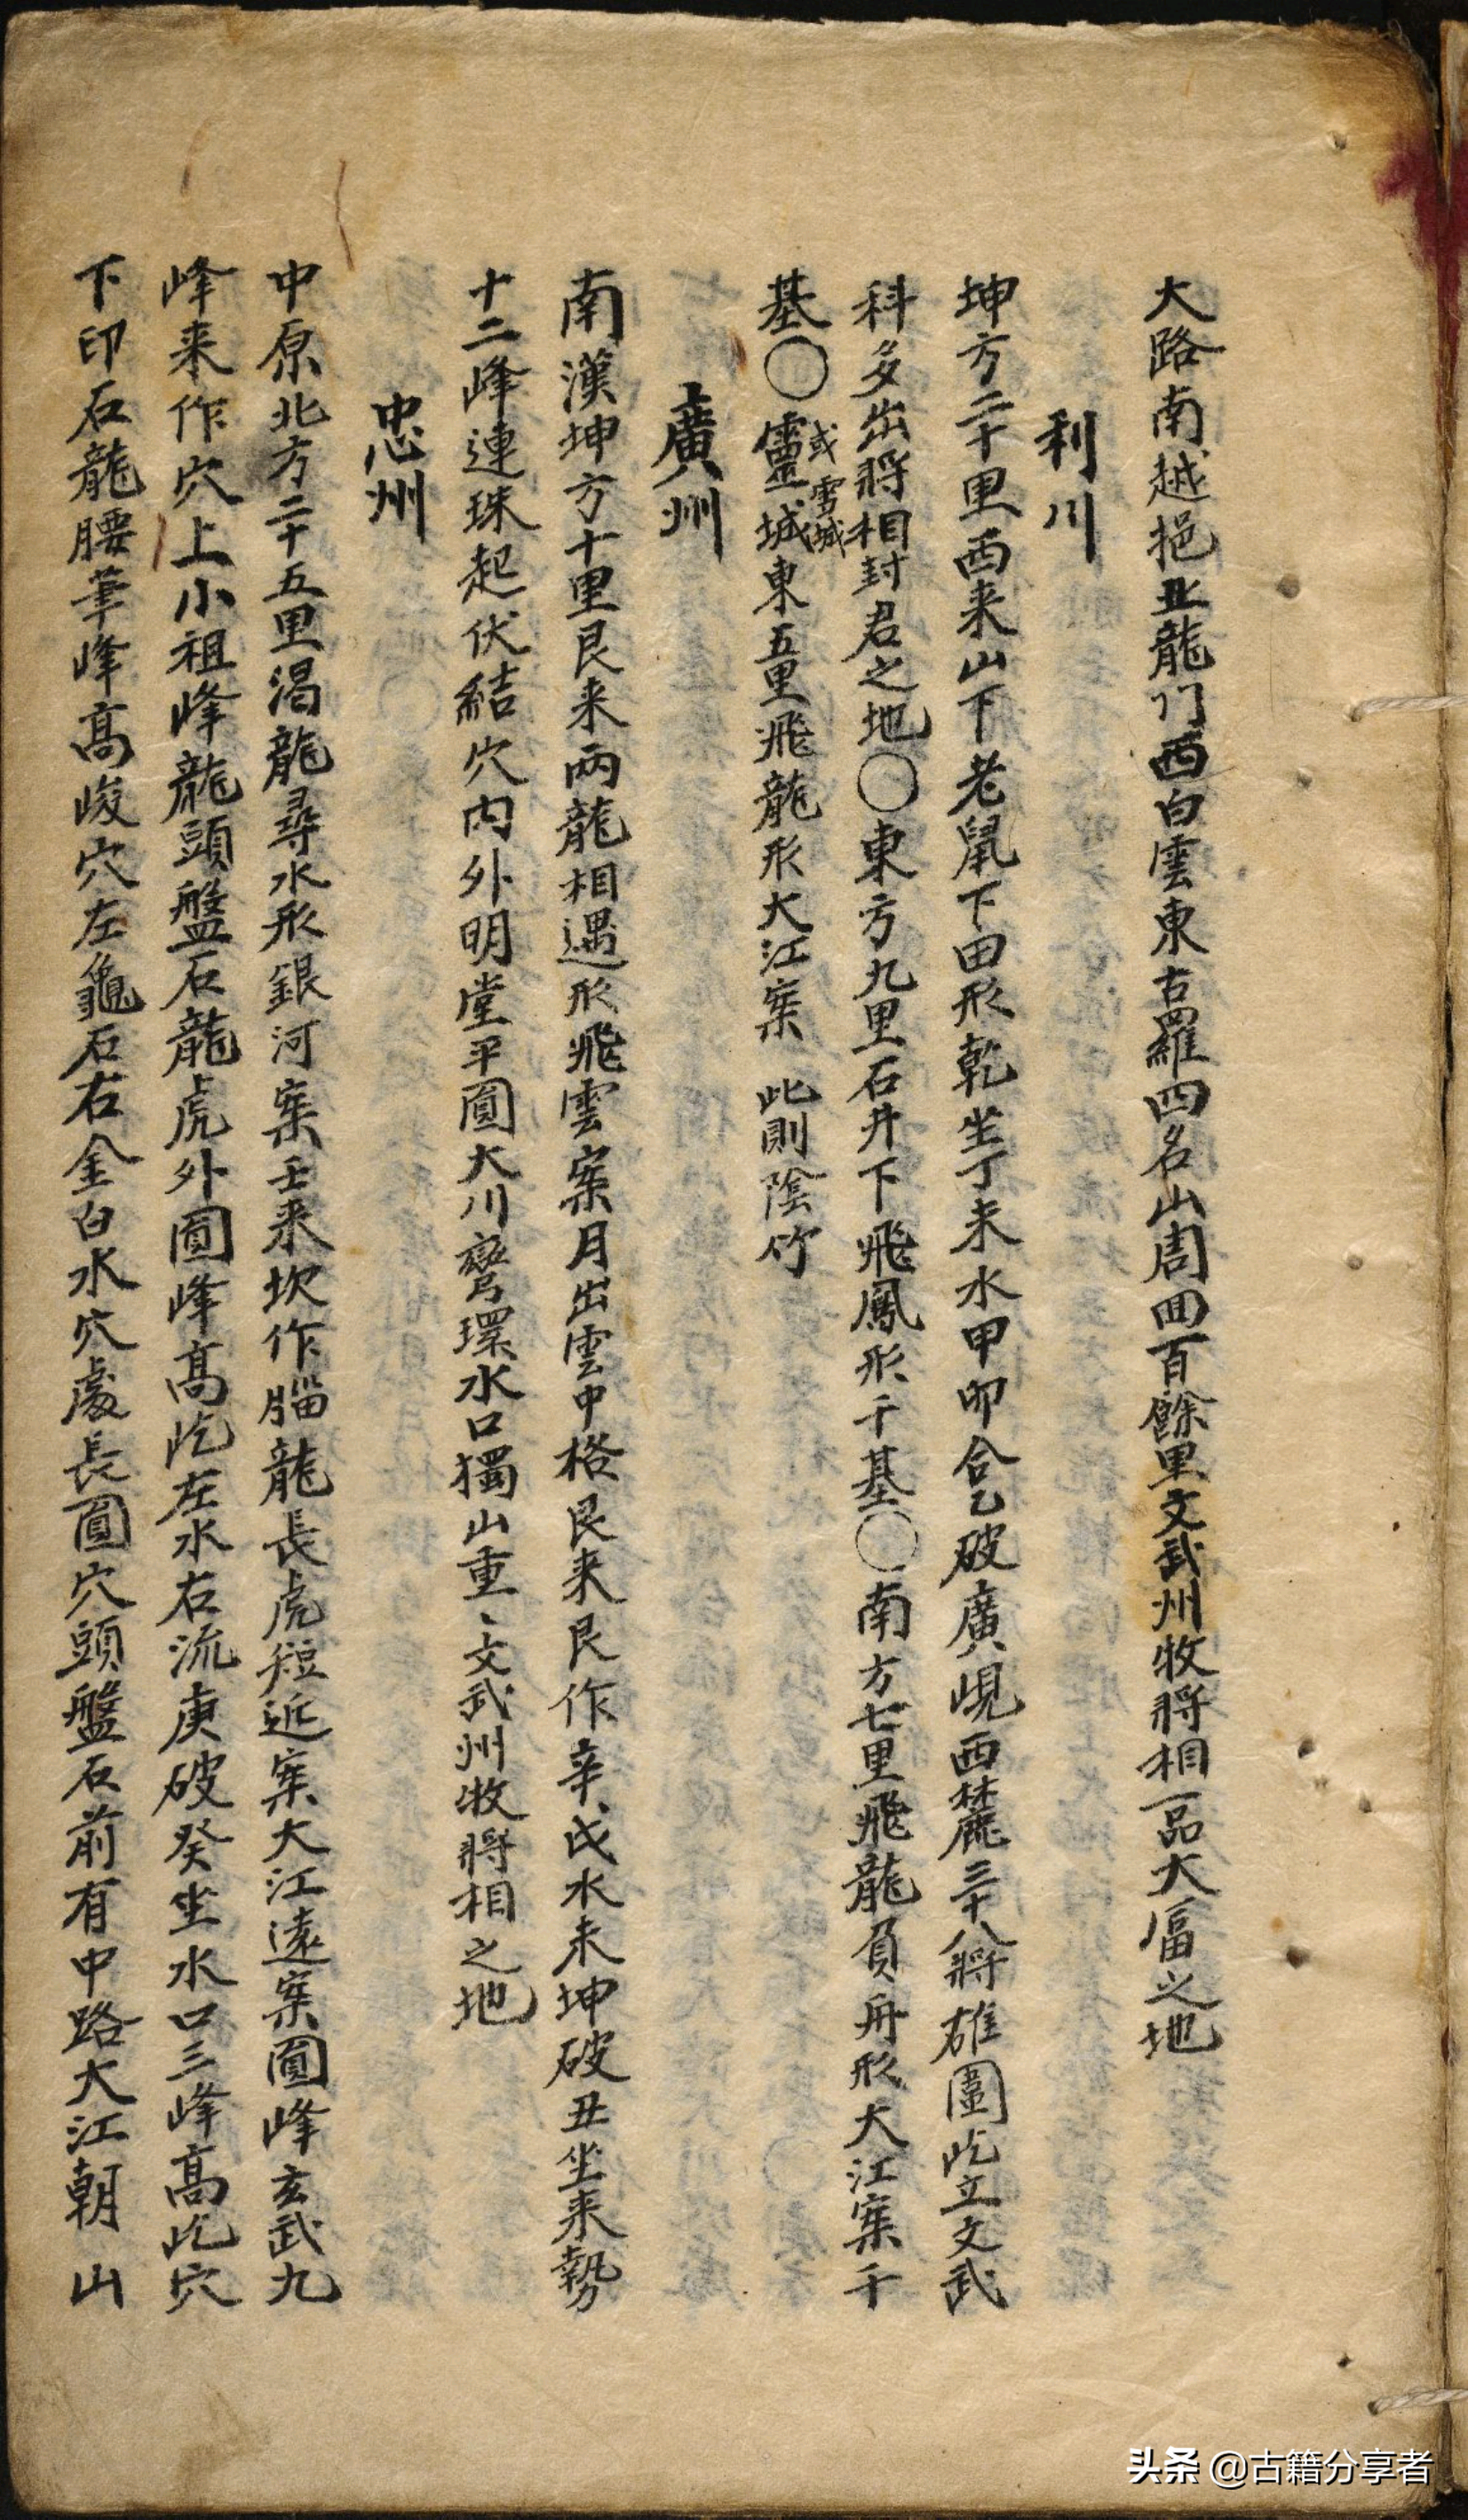 大路南越挹北龍门西白雲東古羅四名山周回百餘里文武州牧將相一品大富之地
利川
坤方二十里西来山下老鼠下田形乾坐丁未水甲卯合乙破廣峴西麓三十八將雄圍屹立文武
科多出將相封君之地〇東方九里石井下飛鳳形千基〇南方七里飛龍負舟形大江案千
基〇靈城東五里飛龍形大江案 此則陰竹
或雪城
廣州
南漢坤方十里艮来兩龍相遇形飛雲案月出雲中格艮来艮作辛戌水未坤破丑坐来勢
十二峰連珠起伏結穴内外明堂平圓大川彎環水口獨山重〻文武州牧將相之地
忠州
中原北方二十五里渴龍尋水形銀河案壬来坎作腦龍長虎短近案大江遠案圓峰玄武九
峰来作穴上小祖峰龍頭盤石龍虎外圓峰高屹左水右流庚破癸坐水口三峰高屹穴
下印石龍腰筆峰高峻穴左龜石右金白水穴處長圓穴頭盤石前有中路大江朝山
头条 @古籍分享者